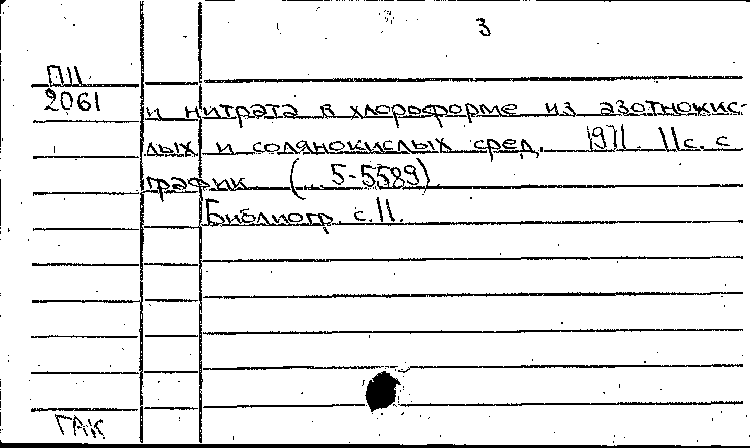 3
П11
2061
и нитрата в хлороформе из азотнокис-
лых и солянокислых сред. 1971. 11с. с
график (... 5-5589).
Библиогр. с.11.
ГАК